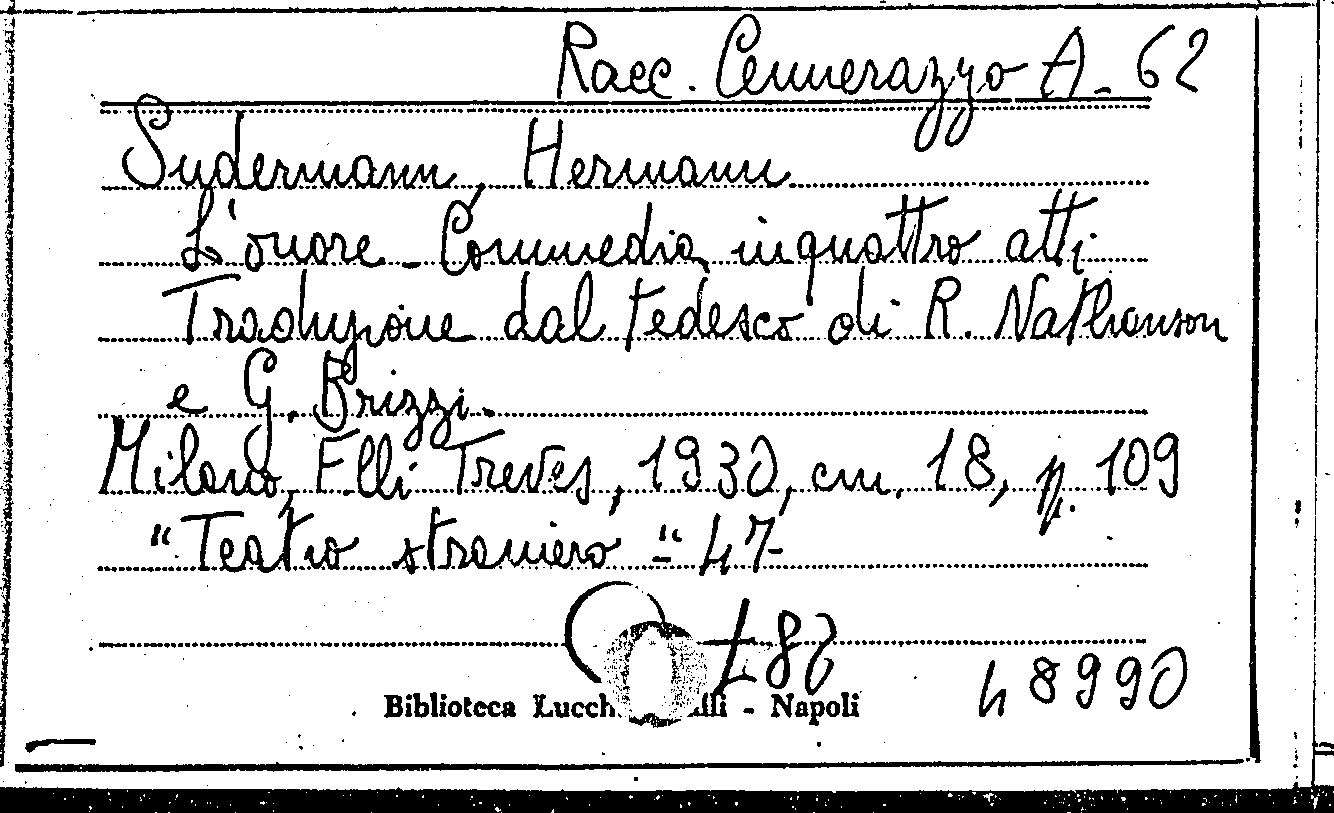 Racc. Cennerazzo A-62
Sudermann, Hermann
L'onore - Commedia in quattro atti
Traduzione dal tedesco di R. Nathanson
e G. Brizzi.
Milano, F.lli Treves, 1930, cm. 18, p. 109
"Teatro straniero" 47
£ 82
48990
Biblioteca Lucch lli - Napoli